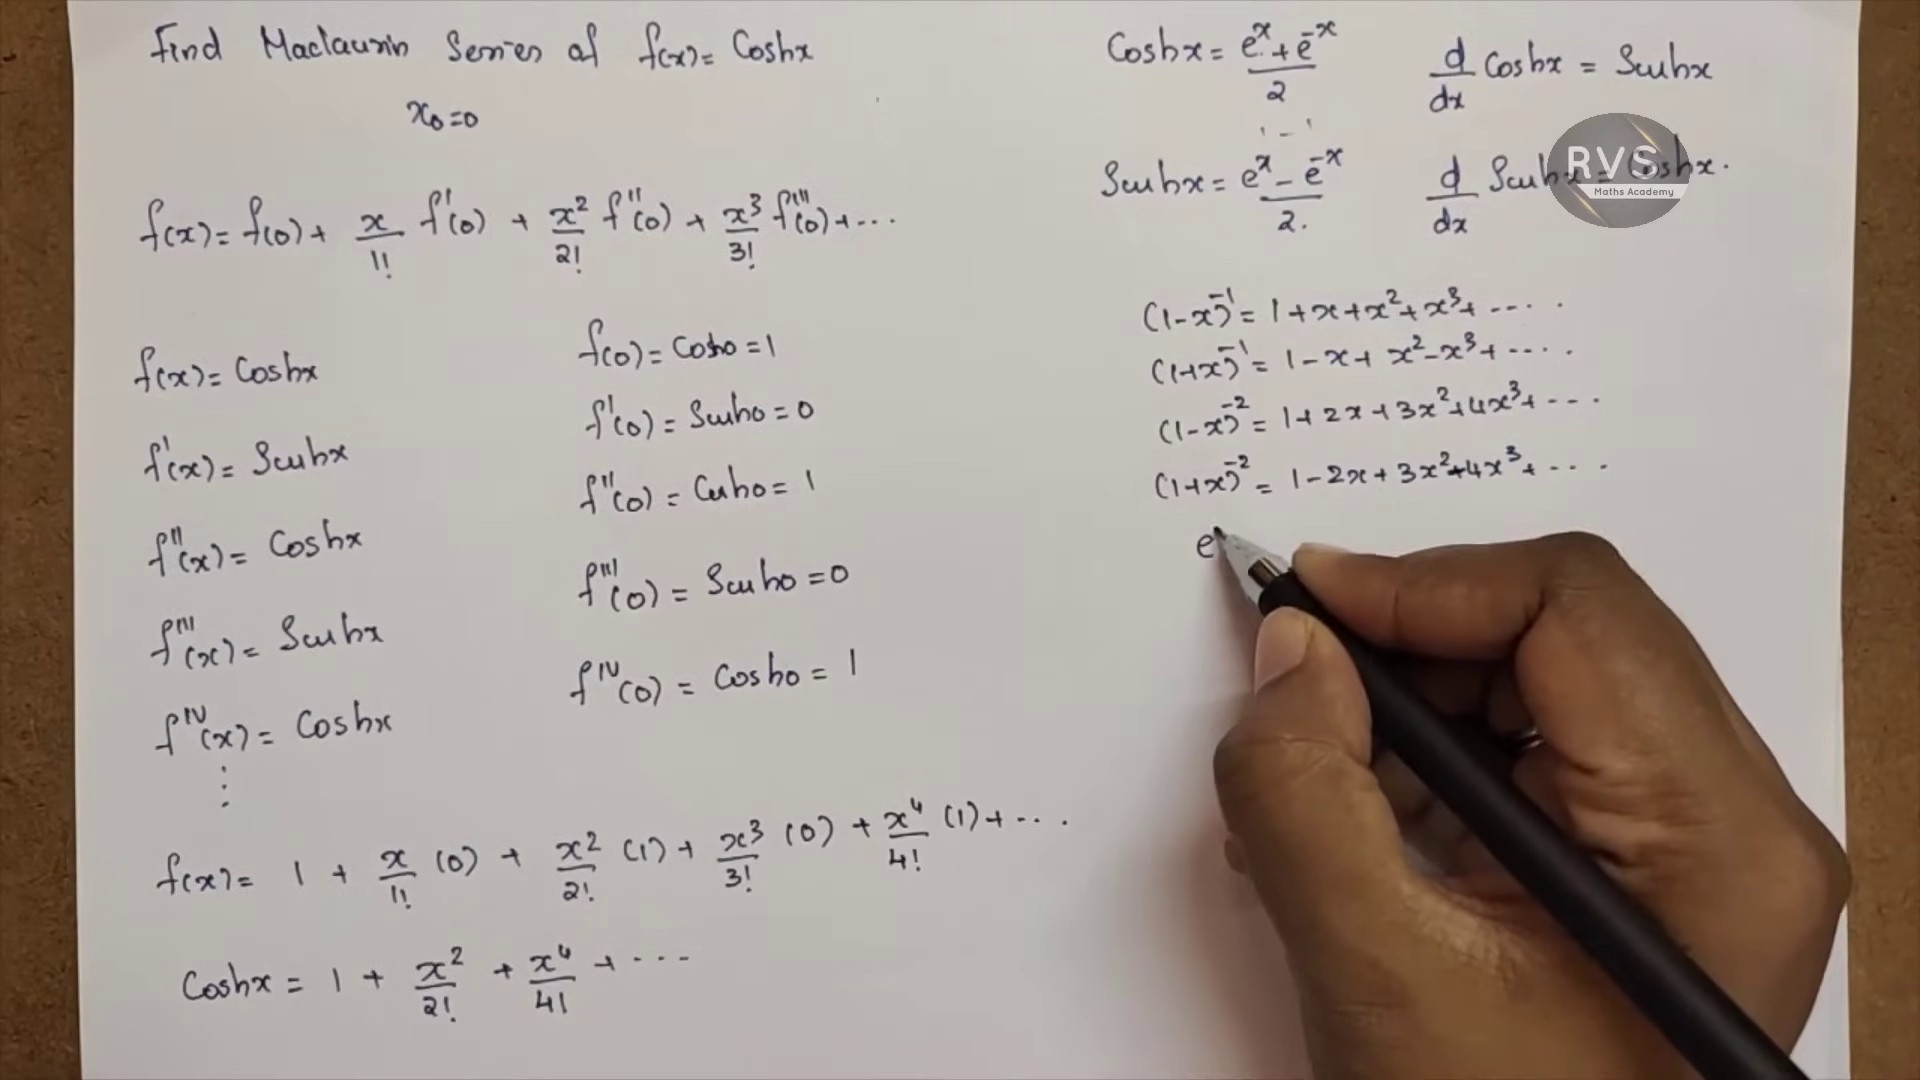 Find Maclaurin Series of f(x) = Coshx
x₀=0
f(x) = f(0) + x/1! f'(0) + x²/2! f''(0) + x³/3! f'''(0) + ...
f(x) = Coshx
f'(x) = Sinhx
f''(x) = Coshx
f'''(x) = Sinhx
f^IV(x) = Coshx
⋮
f(0) = Cosh0 = 1
f'(0) = Sinh0 = 0
f''(0) = Cosh0 = 1
f'''(0) = Sinh0 = 0
f^IV(0) = Cosh0 = 1
f(x) = 1 + x/1! (0) + x²/2! (1) + x³/3! (0) + x⁴/4! (1) + ...
Coshx = 1 + x²/2! + x⁴/4! + ...
Coshx = (e^x + e^-x)/2
d/dx Coshx = Sinhx
Sinhx = (e^x - e^-x)/2.
d/dx Sinhx = Coshx.
RVS
Maths Academy
(1-x)^-1 = 1 + x + x² + x³ + .....
(1+x)^-1 = 1 - x + x² - x³ + .....
(1-x)^-2 = 1 + 2x + 3x² + 4x³ + ....
(1+x)^-2 = 1 - 2x + 3x² - 4x³ + ....
e